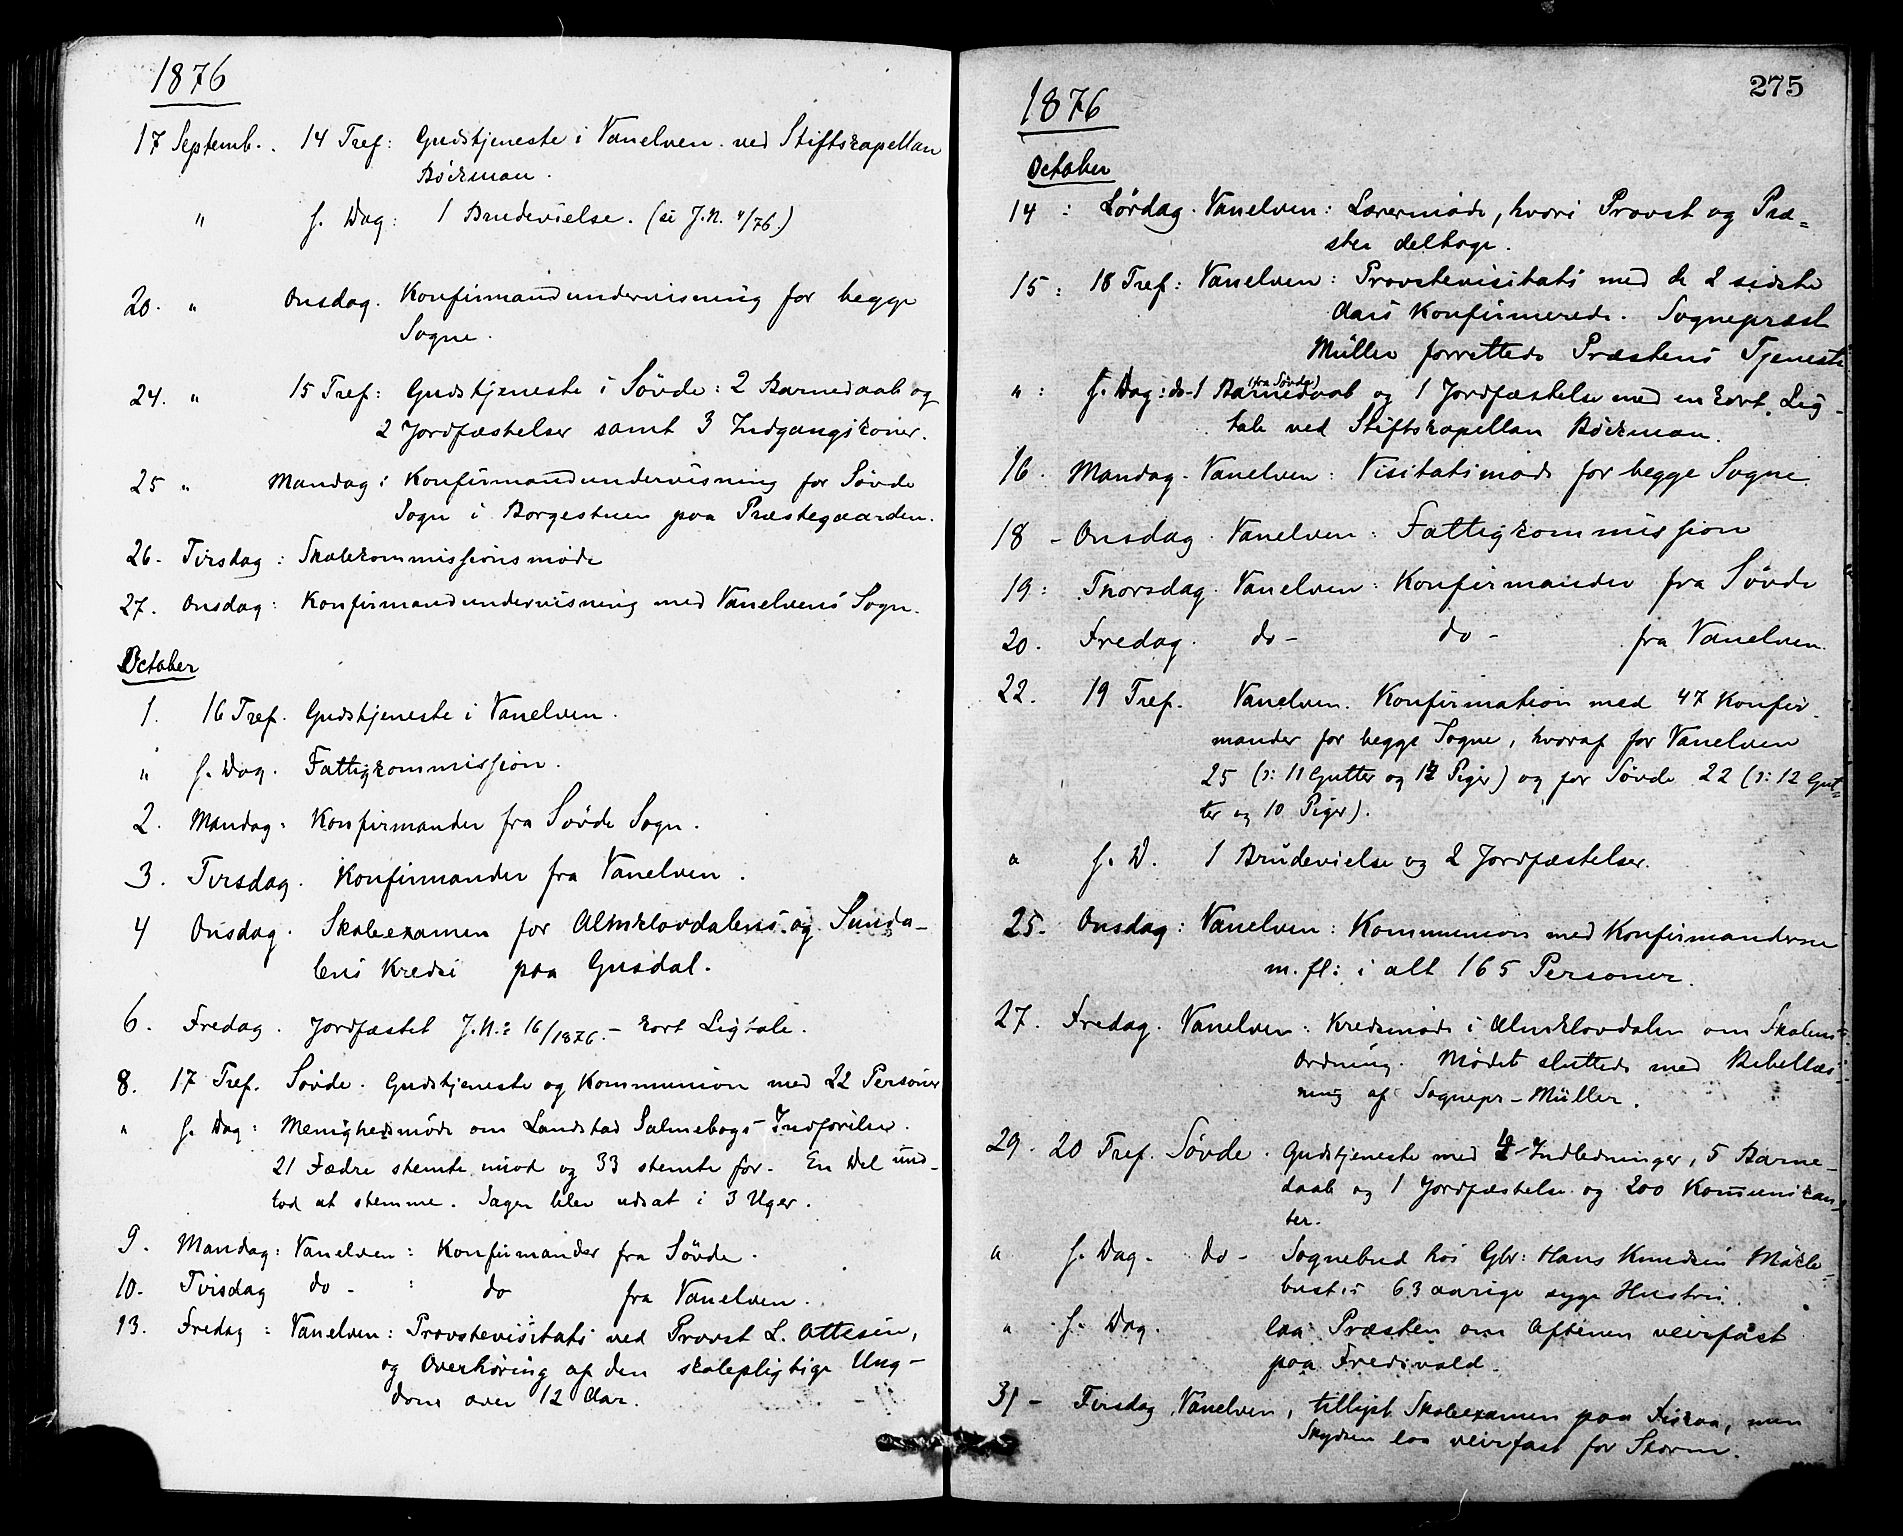 1876
17 Septemb. . 14 Tref: Gudstjeneste i Vanelven ved Stiftskapellan
Böckman.
" f. Dag: 1 Brudevielse. (se J.N. 4/76.)
20. " Onsdag. Konfirmandundervisning for begge
Sogne.
24. " 15 Tref: Gudstjeneste i Sövde: 2 Barnedaab og
2 Jordfæstelser samt 3 Indgangskoner.
25 " Mandag: Konfirmandundervisning for Sövde
Sogn i Borgestuen paa Præstegaarden.
26. Tirsdag: Skolekommissionsmöde
27. Onsdag: Konfirmandundervisning med Vanelvens Sogn.
October
1. 16 Tref. Gudstjeneste i Vanelven.
" f. Dag. Fattigkommission.
2. Mandag: Konfirmander fra Sövde Sogn.
3. Tirsdag. Konfirmander fra Vanelven.
4 Onsdag. Skoleexamen for Almklovdalens og Sunda-
lens Kredse paa Gusdal.
6. Fredag. Jordfæstet J.N.: 16/1876. - kort Ligtale.
8. 17 Tref. Sövde. Gudstjeneste og Kommunion med 22 Personer
" f. Dag: Menighedsmöde om Landstad Salmebogs Indförelse.
21 Fædre stemte imod og 33 stemte for. En Del und-
lod at stemme. Sagen blev udsat i 3 Uger.
9. Mandag: Vanelven: Konfirmander fra Sövde.
10. Tirsdag do - : do fra Vanelven.
13. Fredag: Vanelven: Provstevisitats ved Provst L. Ottesen,
og Overhöring af den skolepligtige Ung-
dom over 12 Aar.
275
1876
October
14: Lördag. Vanelven: Lærermöde, hvori Provst og Præ=
ster deltoge.
15: 18 Tref: Vanelven: Provstevisitats med de 2 sidste
Aars Konfirmerede. Sognepræst
Müller forrettede Præstens Tjeneste
": f. Dag: do - 1 Barnedaab (fra Sövde) og 1 Jordfæstelse med en kort Lig-
tale ved Stiftskapellan Böckman.
16. Mandag. Vanelven: Visitatsmöde for begge Sogne.
18 - Onsdag. Vanelven: Fattigkommission
19: Thorsdag. Vanelven: Konfirmander fra Sövde
20. Fredag. do - do - fra Vanelven.
22. 19 Tref. Vanelven. Konfirmation med 47 Konfir-
mander for begge Sogne, hvoraf for Vanelven
25 (ɔ: 11 Gutter og 14 Piger) og for Sövde 22 (ɔ: 12 Gut=
ter og 10 Piger).
" f. D. 1 Brudevielse og 2 Jordfæstelser.
25. Onsdag: Vanelven: Kommunion med Konfirmanderne
m.fl: i alt 165 Personer.
27. Fredag. Vanelven: Kredsmöde i Almklovdalen om Skolens
Ordning. Mödet sluttede med Bibellæs-
ning af Sognepr. Müller.
29. 20 Tref. Sövde. Gudstjeneste med 4 Indledninger, 5 Barne-
daab og 1 Jordfæstelse og 200 Kommunikan-
ter.
" f. Dag. do - Sognebud hos Gbr: Hans Knudsen Mökle-
bust's 63 aarige syge Hustru.
" f. Dag. laa Præsten om Aftenen veirfast
paa Fredsvold.
31 - Tirsdag Vanelven, tillyst Skoleexamen paa Fiskaa, men
Skydsen laa veirfast for Storm.